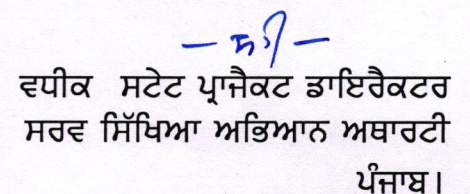 — ਸਹੀ —
ਵਧੀਕ ਸਟੇਟ ਪ੍ਰਾਜੈਕਟ ਡਾਇਰੈਕਟਰ
ਸਰਵ ਸਿੱਖਿਆ ਅਭਿਆਨ ਅਥਾਰਟੀ
ਪੰਜਾਬ।